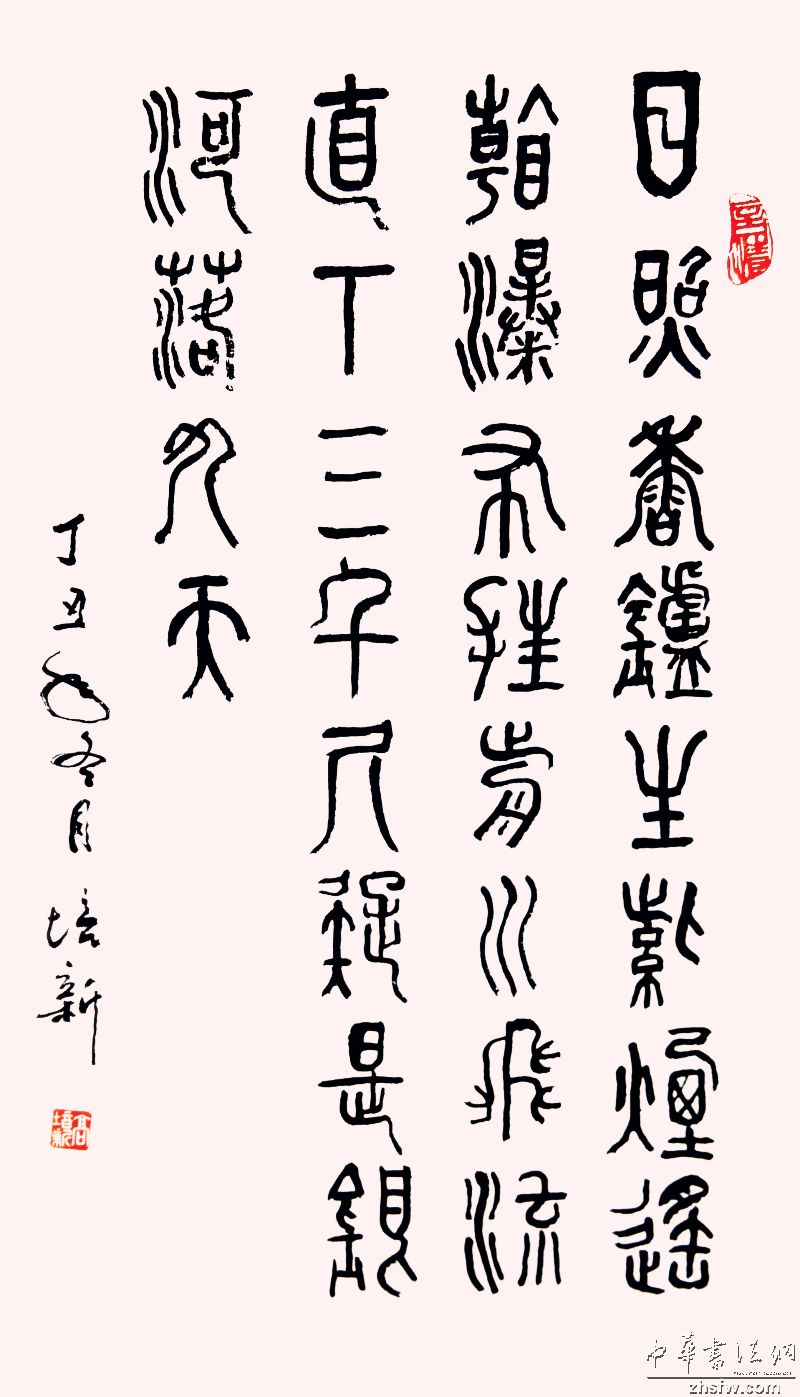 日照香鑪生紫煙遙
看瀑布挂前川飛流
直下三千尺疑是銀
河落九天
丁丑年冬月 培新
高培新
中華書法網
zhsfw.com